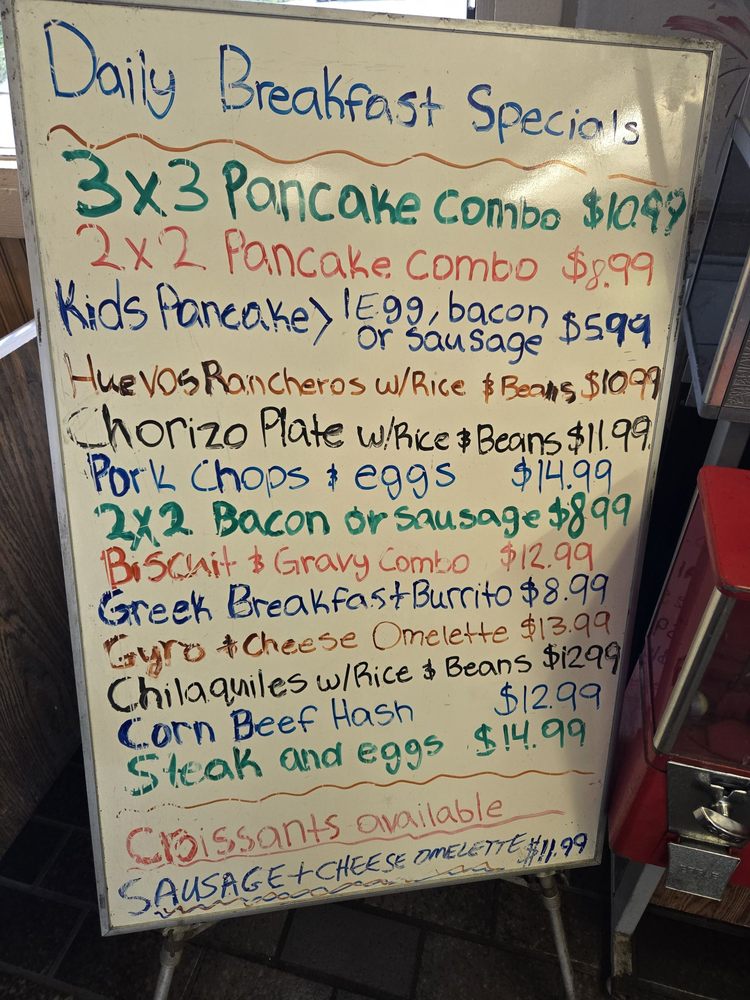 Daily Breakfast Specials
3x3 Pancake Combo $10.99
2x2 Pancake Combo $8.99
Kids Pancake> 1 Egg, bacon
or sausage $5.99
Huevos Rancheros w/Rice & Beans $10.99
Chorizo Plate w/Rice & Beans $11.99
Pork Chops & eggs $14.99
2x2 Bacon or sausage $8.99
Biscuit & Gravy Combo $12.99
Greek Breakfast Burrito $8.99
Gyro + Cheese Omelette $13.99
Chilaquiles w/Rice & Beans $12.99
Corn Beef Hash $12.99
Steak and eggs $14.99
Croissants available
SAUSAGE + CHEESE OMELETTE $11.99